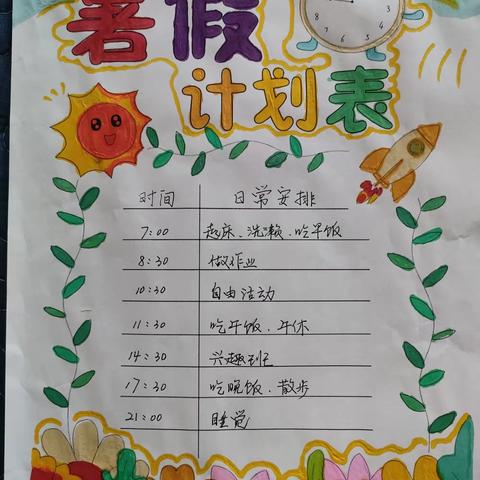 暑假
计划表
时间 日常安排
7:00 起床、洗漱、吃早饭
8:30 做作业
10:30 自由活动
11:30 吃午饭、午休
14:30 兴趣班
17:30 吃晚饭、散步
21:00 睡觉